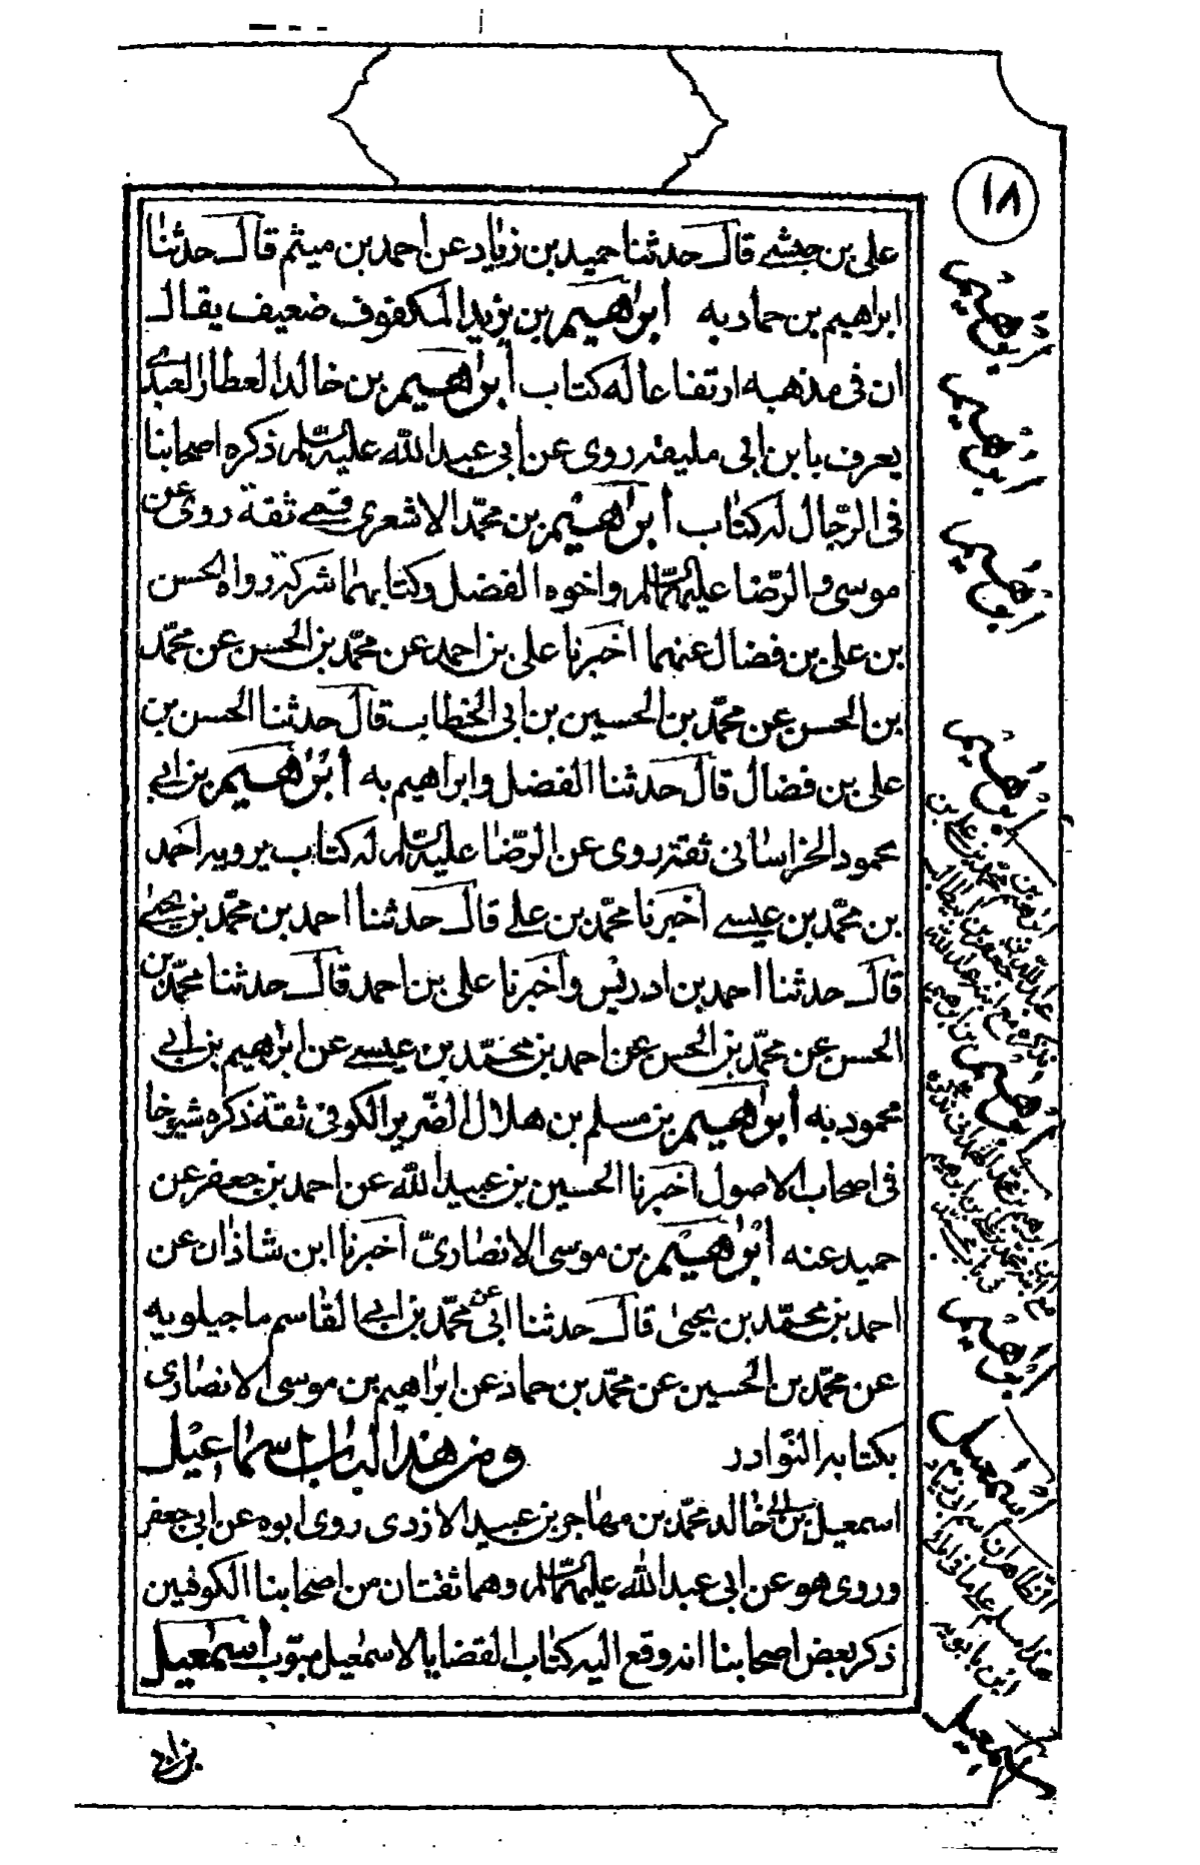 ١٨
على بن حبشى قال حدثنا حميد بن زياد عن احمد بن ميثم قال حدثنا
ابراهيم بن حماد به أبراهيم بن يزيد المكفوف ضعيف يقال
ان فى مذهبه ارتفاعا له كتاب أبراهيم بن خالد العطار العبدى
يعرف بابن ابى مليقة روى عن ابى عبد الله عليه السلم ذكره اصحابنا
فى الرجال له كتاب أبراهيم بن محمد الاشعرى قمى ثقة روى عن
موسى والرضا عليهما السلم واخوه الفضل وكتابهما شركة رواه الحسن
بن على بن فضال عنهما اخبرنا على بن احمد عن محمد بن الحسن عن محمد
بن الحسن عن محمد بن الحسين بن ابى الخطاب قال حدثنا الحسن بن
على بن فضال قال حدثنا الفضل وابراهيم به أبراهيم بن ابى
محمود الخراسانى ثقة روى عن الرضا عليه السلم له كتاب يرويه احمد
بن محمد بن عيسى اخبرنا محمد بن على قال حدثنا احمد بن محمد بن يحيى
قال حدثنا احمد بن ادريس واخبرنا على بن احمد قال حدثنا محمد بن
الحسن عن محمد بن الحسن عن احمد بن محمد بن عيسى عن ابراهيم بن ابى
محمود به أبراهيم بن مسلم بن هلال الضرير الكوفى ثقة ذكره شيوخنا
فى اصحاب الاصول اخبرنا الحسين بن عبيد الله عن احمد بن جعفر عن
حميد عنه أبراهيم بن موسى الانصارى اخبرنا ابن شاذان عن
احمد بن محمد بن يحيى قال حدثنا ابى عن محمد بن ابى القاسم ماجيلويه
عن محمد بن الحسين عن محمد بن حماد عن ابراهيم بن موسى الانصارى
بكتابه النوادر ومن هذا الباب اسماعيل
اسمعيل بن ابى خالد محمد بن مهاجر بن عبيد الازدى روى ابوه عن ابى جعفر
وروى هو عن ابى عبد الله عليهما السلم وهما ثقتان من اصحابنا الكوفيين
ذكر بعض اصحابنا انه وقع اليه كتاب القضايا لاسمعيل مبوب أسمعيل
بن ابى
ابرهيم
ابرهيم
ابرهيم
ابرهيم
ابرهيم
ابرهيم
اسمعيل
ابن بابويه
اسمعيل